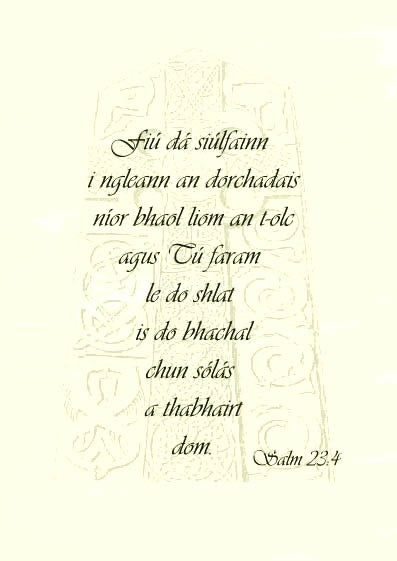 Fiú dá siúlfainn
i ngleann an dorchadais
níor bhaol liom an t-olc
agus Tú faram
le do shlat
is do bhachal
chun sólás
a thabhairt
dom.
Salm 23:4